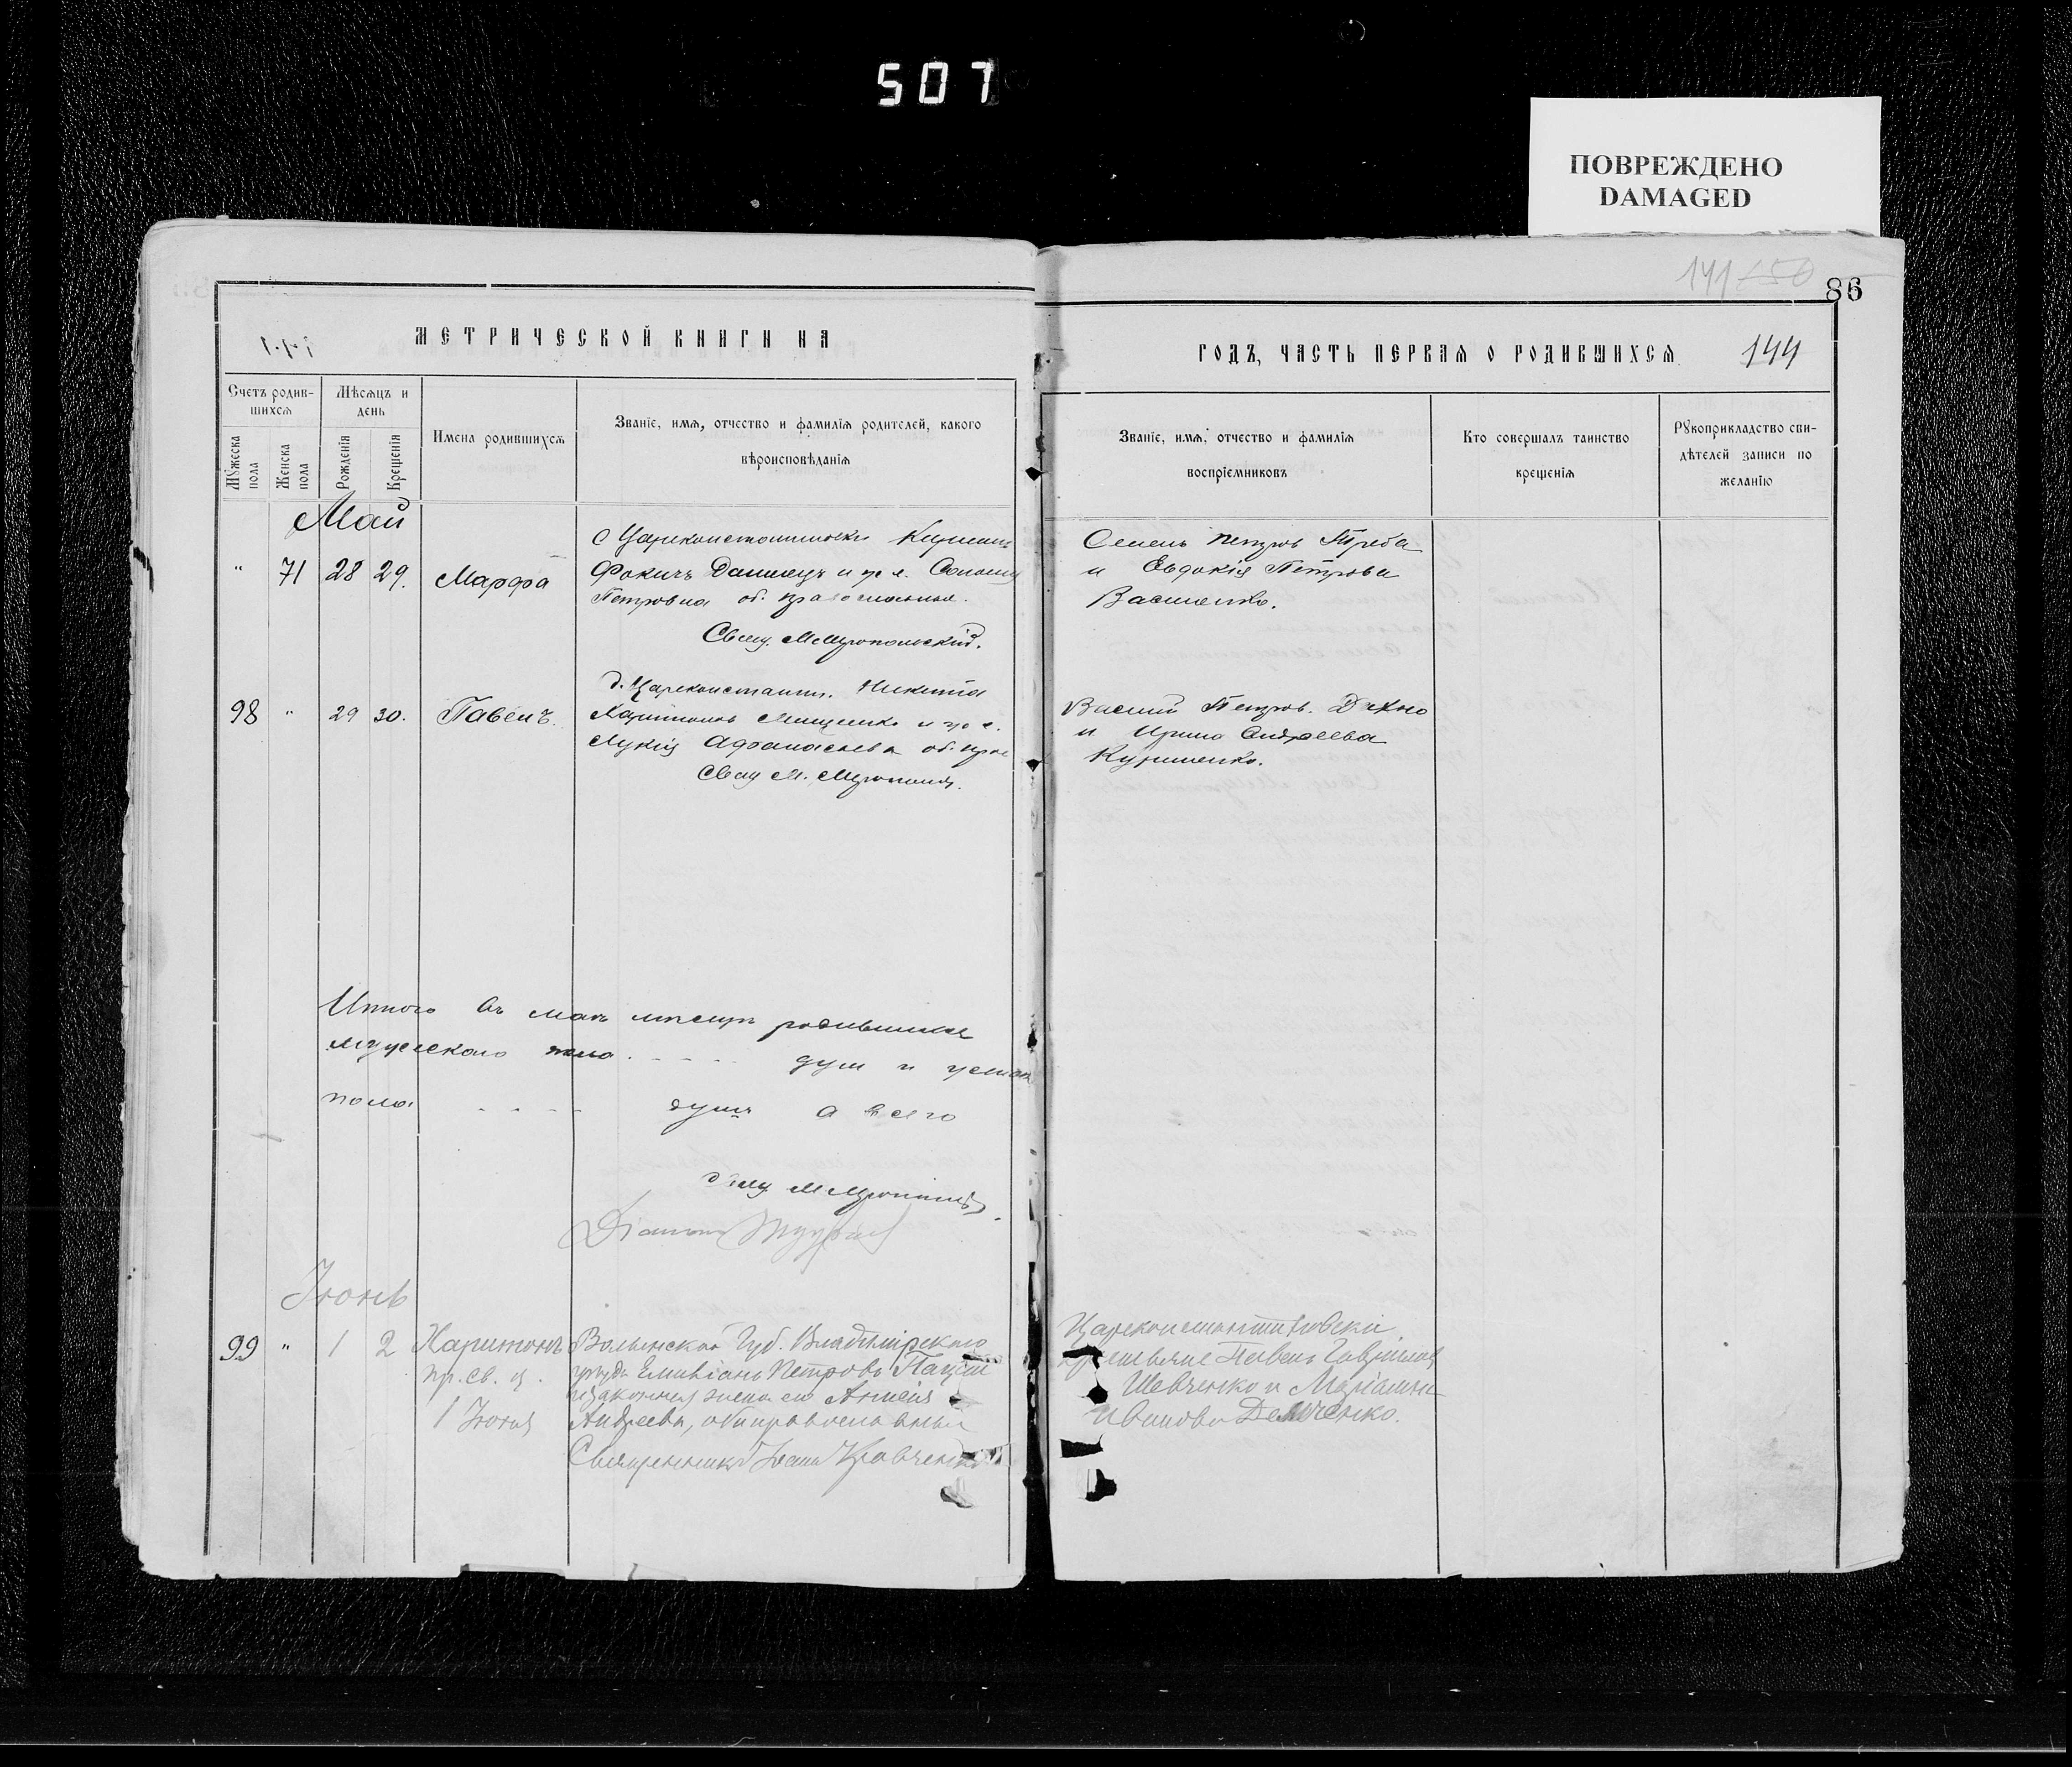 507
ПОВРЕЖДЕНО
DAMAGED
141 150
86
МЕТРИЧЕСКОЙ КНИГИ НА
ГОДЪ, ЧАСТЬ ПЕРВАЯ О РОДИВШИХСЯ
144
Счетъ родив-
шихся
Мужеска пола
Женска пола
Мѣсяцъ и
день
Рожденія
Крещенія
Имена родившихся
Званіе, имя, отчество и фамилія родителей, какого
вѣроисповѣданія
Званіе, имя, отчество и фамилія
воспріемниковъ
Кто совершалъ таинство
крещенія
Рукоприкладство сви-
дѣтелей записи по
желанію
Май
" 71 28 29. Марфа
Фокичъ Данилецъ и
Петровна об. православные.
Свящ. М Мтропольскій.
Семенъ Петров Треба
и Евдокія Петрова
Василенко.
98 " 29 30. Павелъ
д. Цареконстант. Никита
Харитонов Мищенко и
Лукія Афанасьева об. прав
Свящ М.
Василий Петров. Дахно
и Ирина Андреева
Куриленко.
Итого въ маѣ мѣсяцѣ родившихся
мужескаго пола душ и женск
пола душъ а всего
Іюнь
99 " 1 2 Харитонъ
пр. св. и.
1 Іюня
Волынской Губ. Владимірскаго
уѣзда Емиліанъ Петровъ
и законная жена его
Андреева, оба православные
Священникъ Іоаннъ Кравченко
Цареконстантиновски
крестьяне Павелъ Гавріилов
Шевченко и Маріанна
Иванова Демченко.